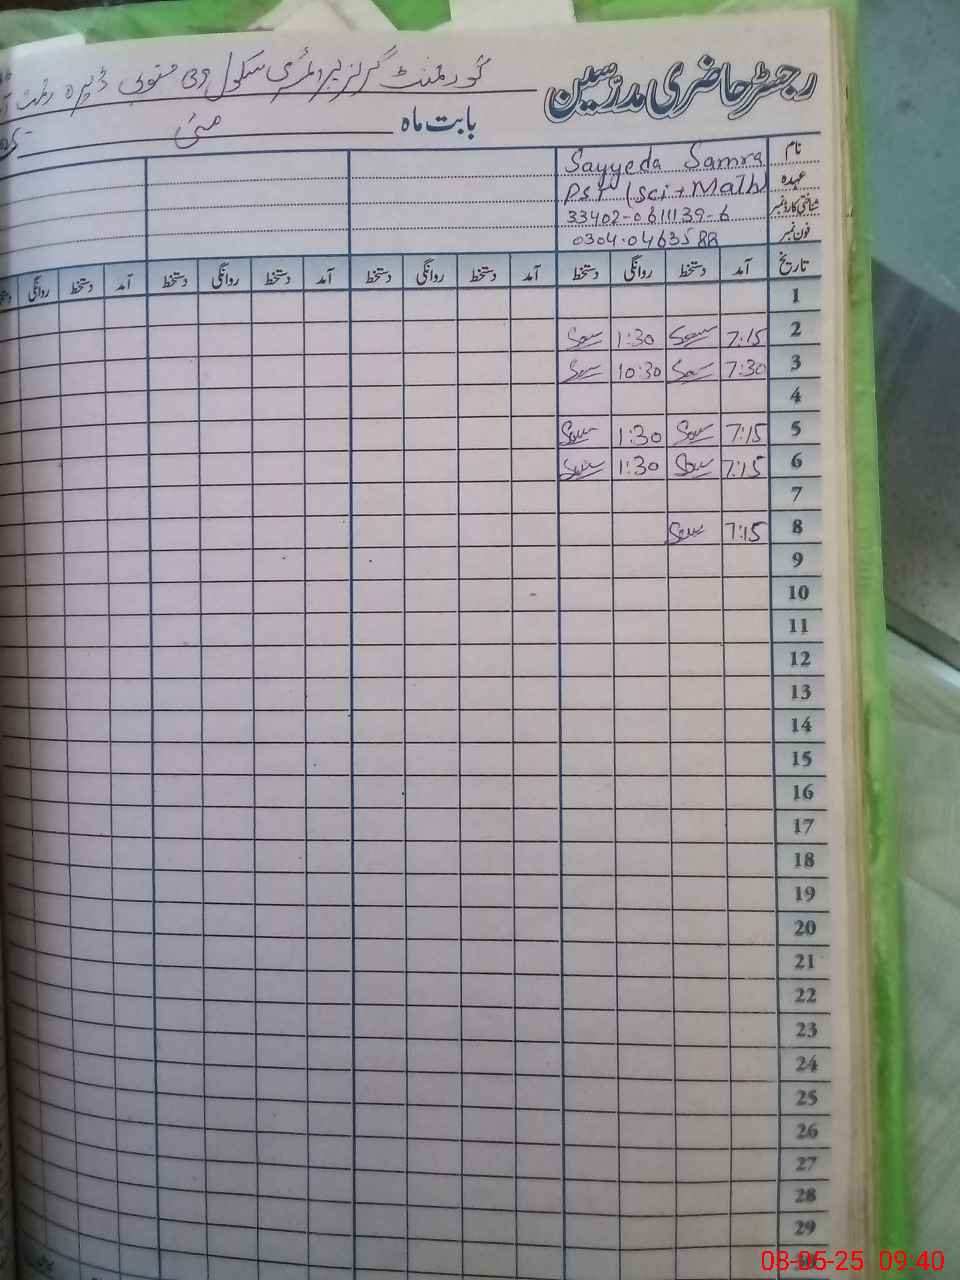 رجسٹر حاضری مدرسین گورنمنٹ گرلز پرائمری سکول ڈیرہ
بابت ماہ مئی
نام Sayyeda Samra
عہدہ PST (Sci + Math)
شناختی کارڈ نمبر 33402-0611139-6
فون نمبر 0304-0463588
تاریخ آمد دستخط روانگی دستخط آمد دستخط روانگی دستخط آمد دستخط روانگی دستخط آمد دستخط روانگی
1
2 7:15 Sam 1:30 Sam
3 7:30 Sam 10:30 Sam
4
5 7:15 Sam 1:30 Sam
6 7:15 Sam 1:30 Sam
7
8 7:15 Sam
9
10
11
12
13
14
15
16
17
18
19
20
21
22
23
24
25
26
27
28
29
30
08-05-25 09:40